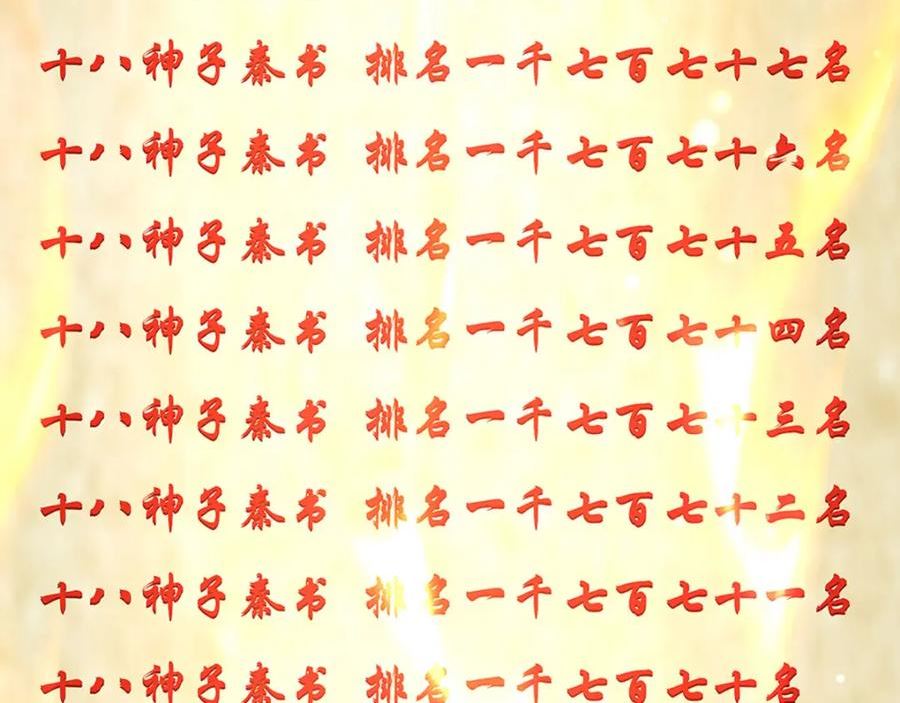 十八神子秦书 排名一千七百七十七名
十八神子秦书 排名一千七百七十六名
十八神子秦书 排名一千七百七十五名
十八神子秦书 排名一千七百七十四名
十八神子秦书 排名一千七百七十三名
十八神子秦书 排名一千七百七十二名
十八神子秦书 排名一千七百七十一名
十八神子秦书 排名一千七百七十名